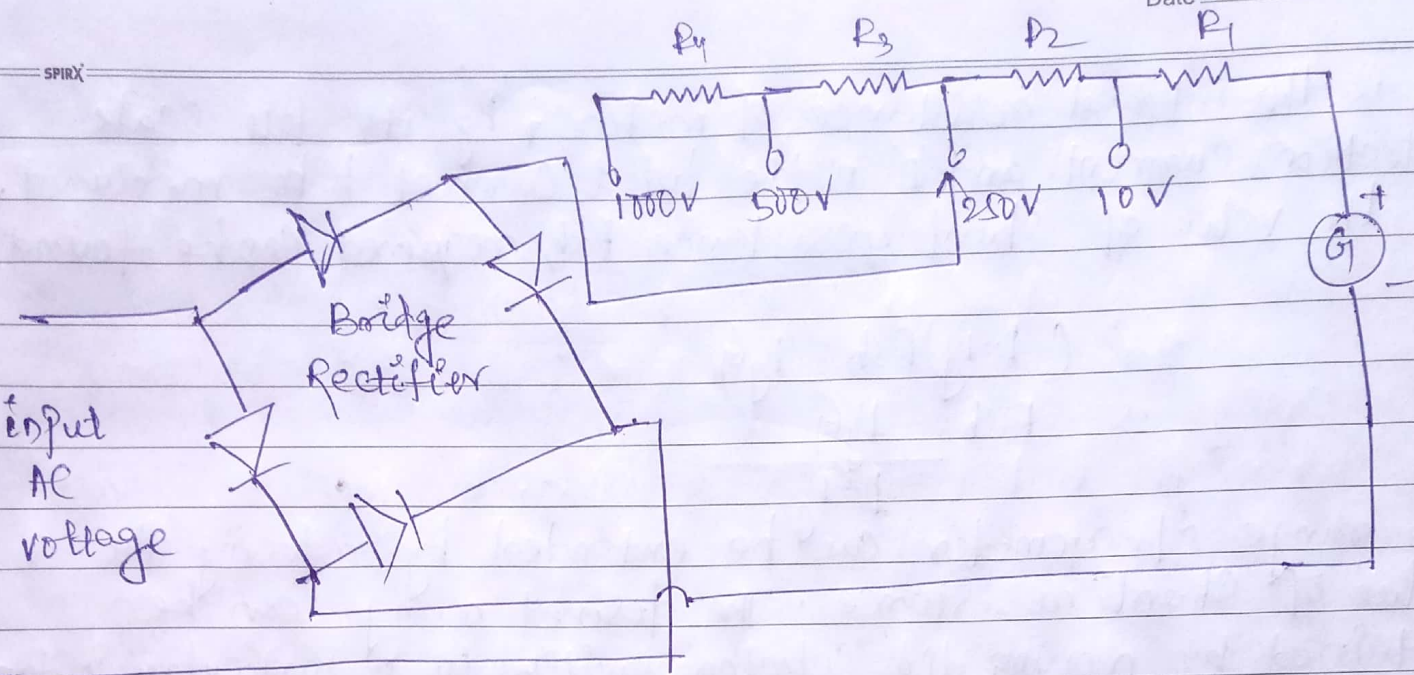 Date
R4 R3 R2 R1
SPIRX
1000V 500V 250V 10V
+
G
-
Bridge
Rectifier
input
AC
voltage